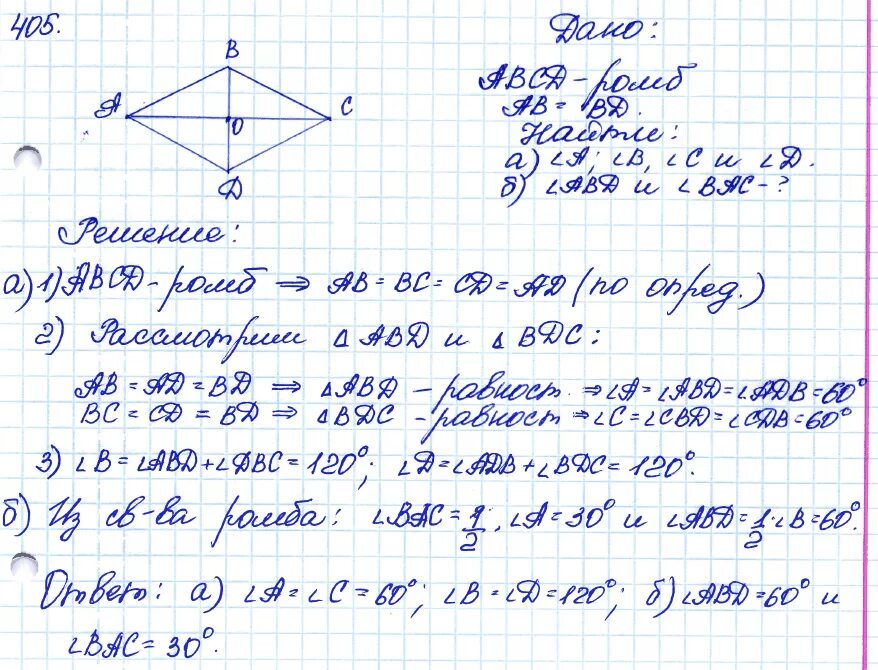 405.
Дано:
B
A
C
O
D
ABCD - ромб
AB = BD.
Найти:
а) ∠A; ∠B, ∠C и ∠D.
б) ∠ABD и ∠BAC - ?
Решение:
а) 1) ABCD - ромб ⇒ AB = BC = CD = AD (по опред.)
2) Рассмотрим △ ABD и △ BDC:
AB = AD = BD ⇒ △ABD - равност. ⇒ ∠A = ∠ABD = ∠ADB = 60°
BC = CD = BD ⇒ △BDC - равност ⇒ ∠C = ∠CBD = ∠CDB = 60°
3) ∠B = ∠ABD + ∠DBC = 120°; ∠D = ∠ADB + ∠BDC = 120°.
б) Из св-ва ромба: ∠BAC = 1/2 · ∠A = 30° и ∠ABD = 1/2 · ∠B = 60°.
Ответ: а) ∠A = ∠C = 60°; ∠B = ∠D = 120°; б) ∠ABD = 60° и
∠BAC = 30°.